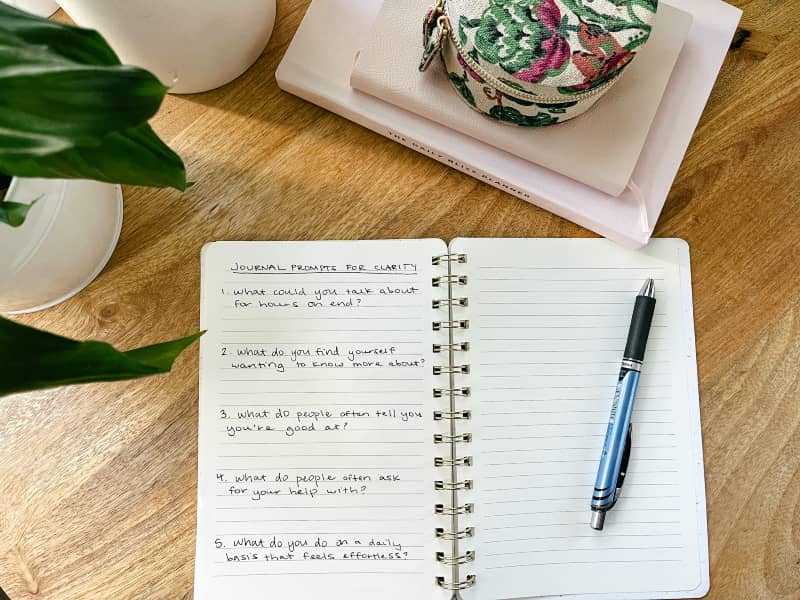 THE DAILY BLISS PLANNER
JOURNAL PROMPTS FOR CLARITY
1. What could you talk about
for hours on end?
2. What do you find yourself
wanting to know more about?
3. What do people often tell you
you're good at?
4. What do people often ask
for your help with?
5. What do you do on a daily
basis that feels effortless?